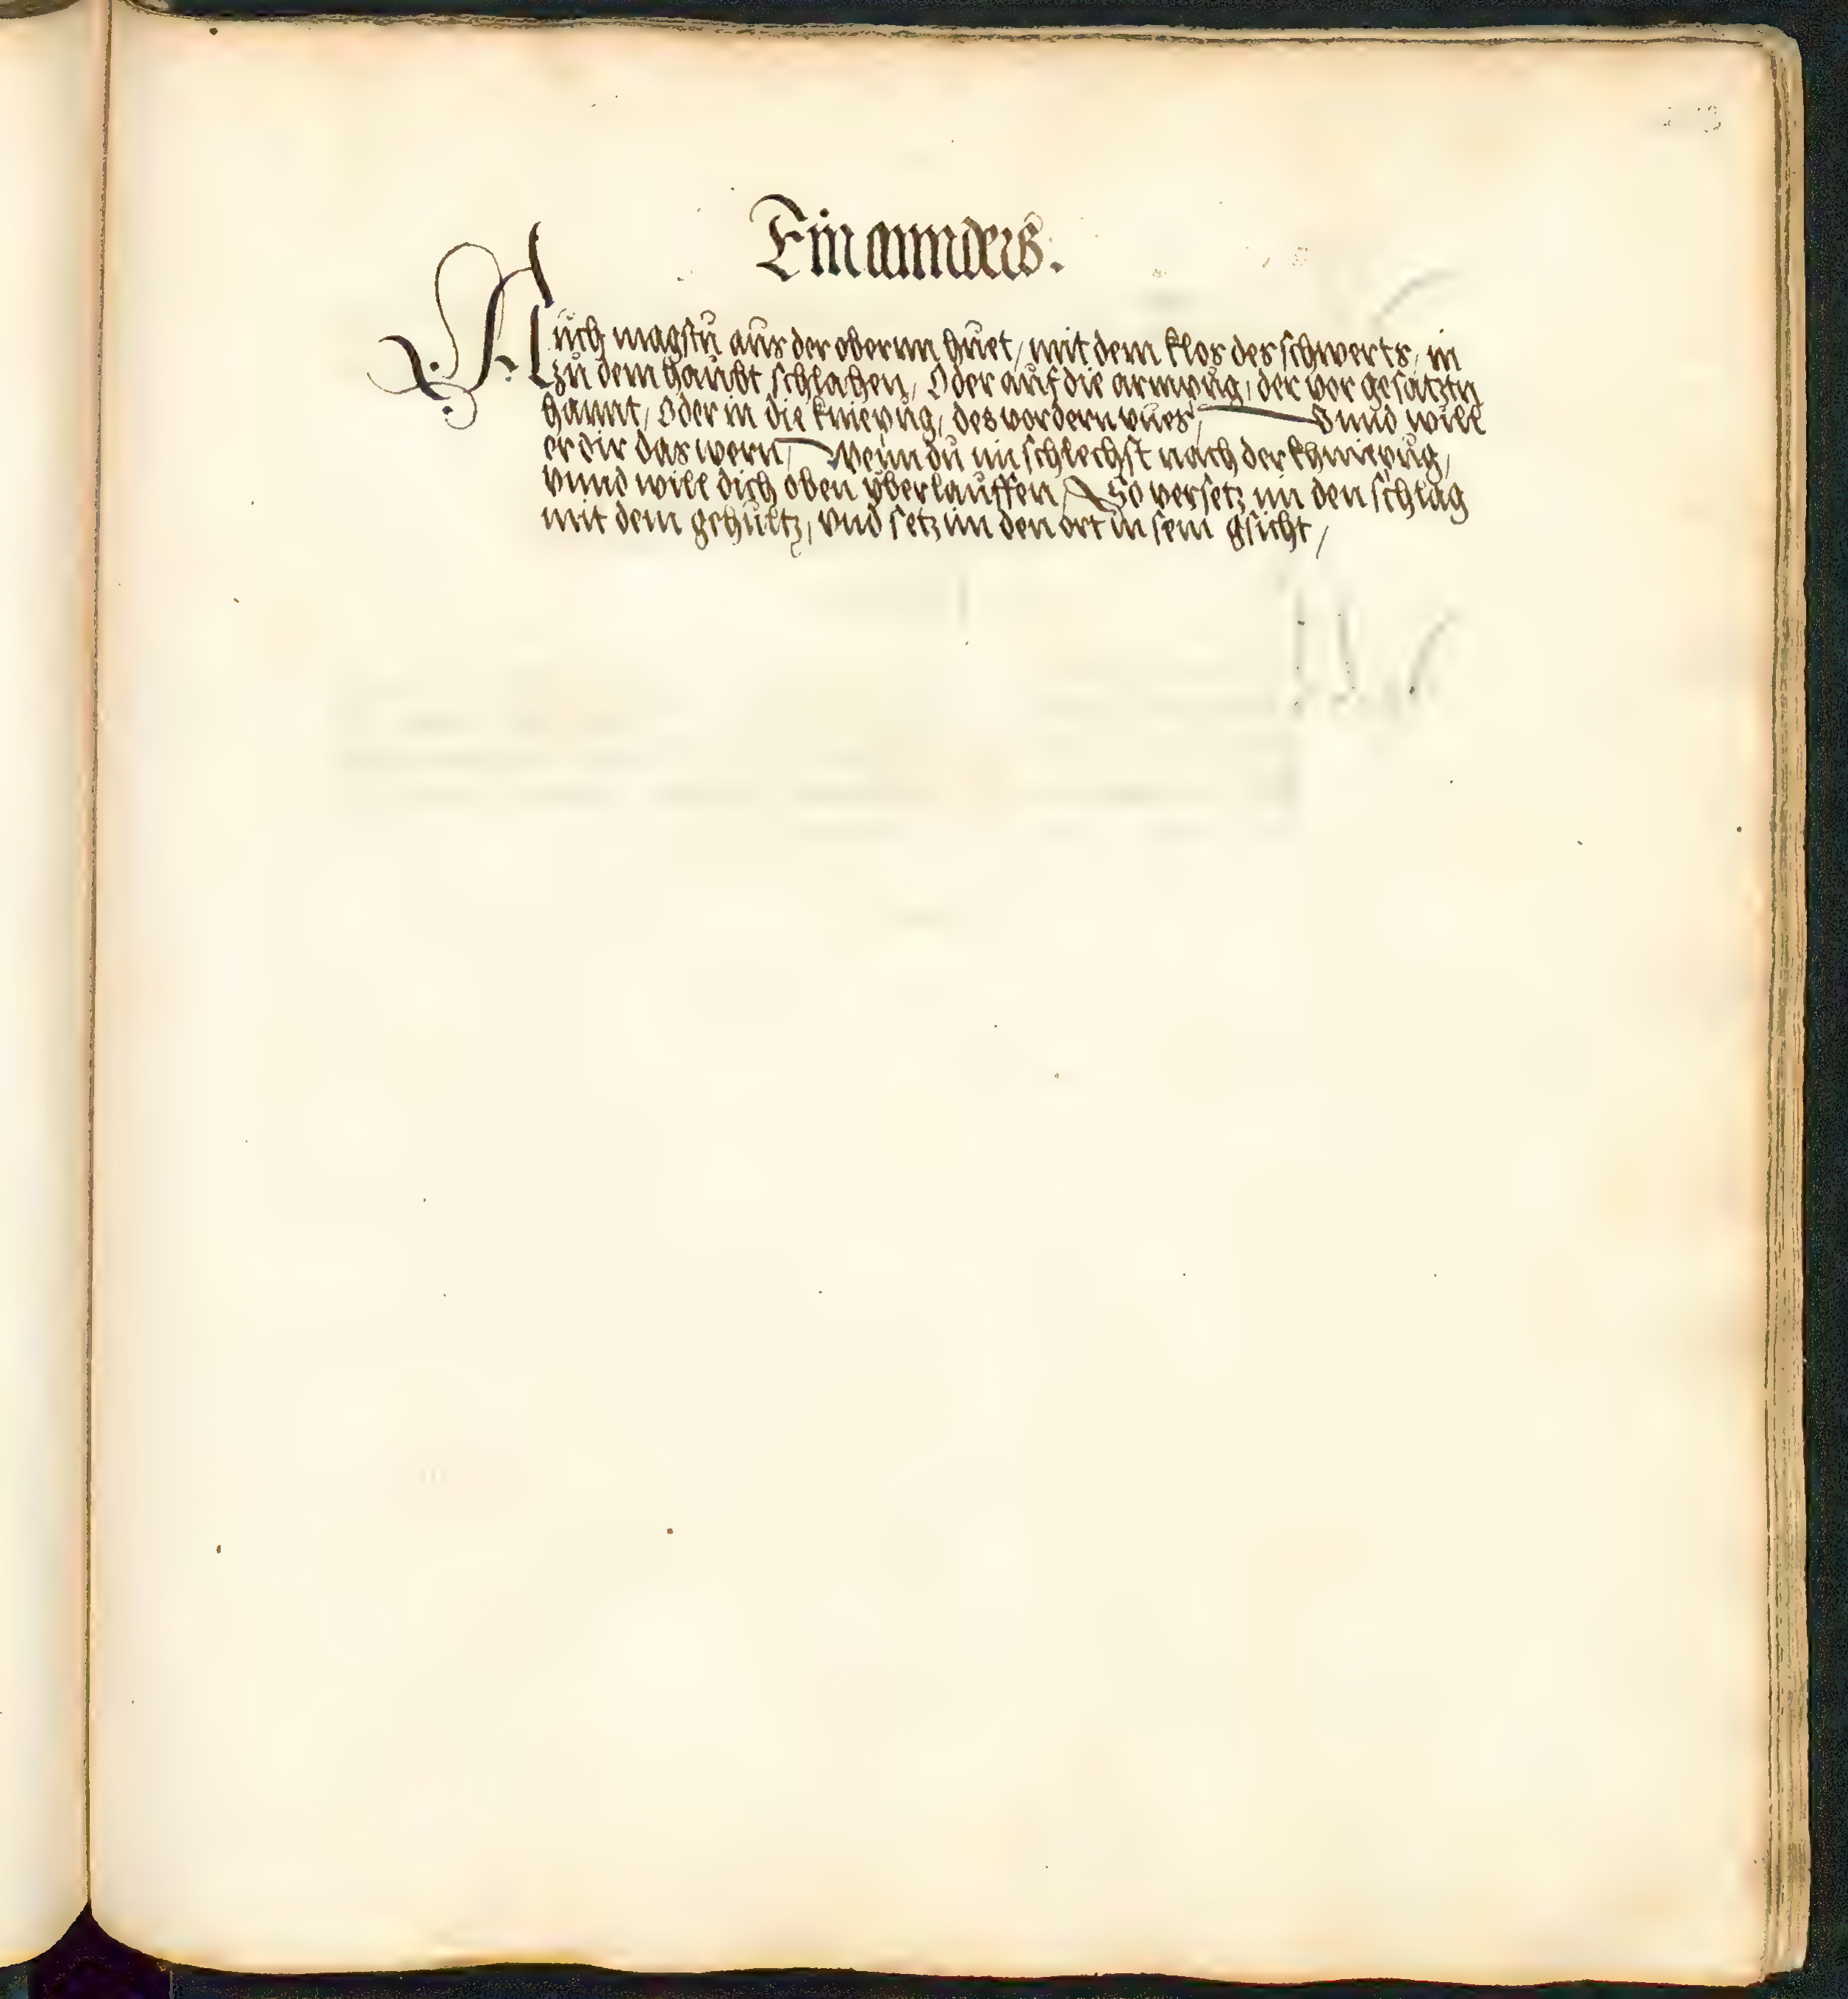 Ein annders.
Auch magstu aus der obernn huet, mit dem klos des schwerts, in
zu dem haubt schlahen, Oder auf die armpug, der vor gesatztn
hannt, Oder in die kniepug, des vordern vues, Vnnd will
er dir das wern, Wenn du im schlechst nach der khniepug,
vnnd will dich oben yberlauffen, So versetz im den schlag
mit dem gehultz, vnd setz im den ort in sein gsicht,